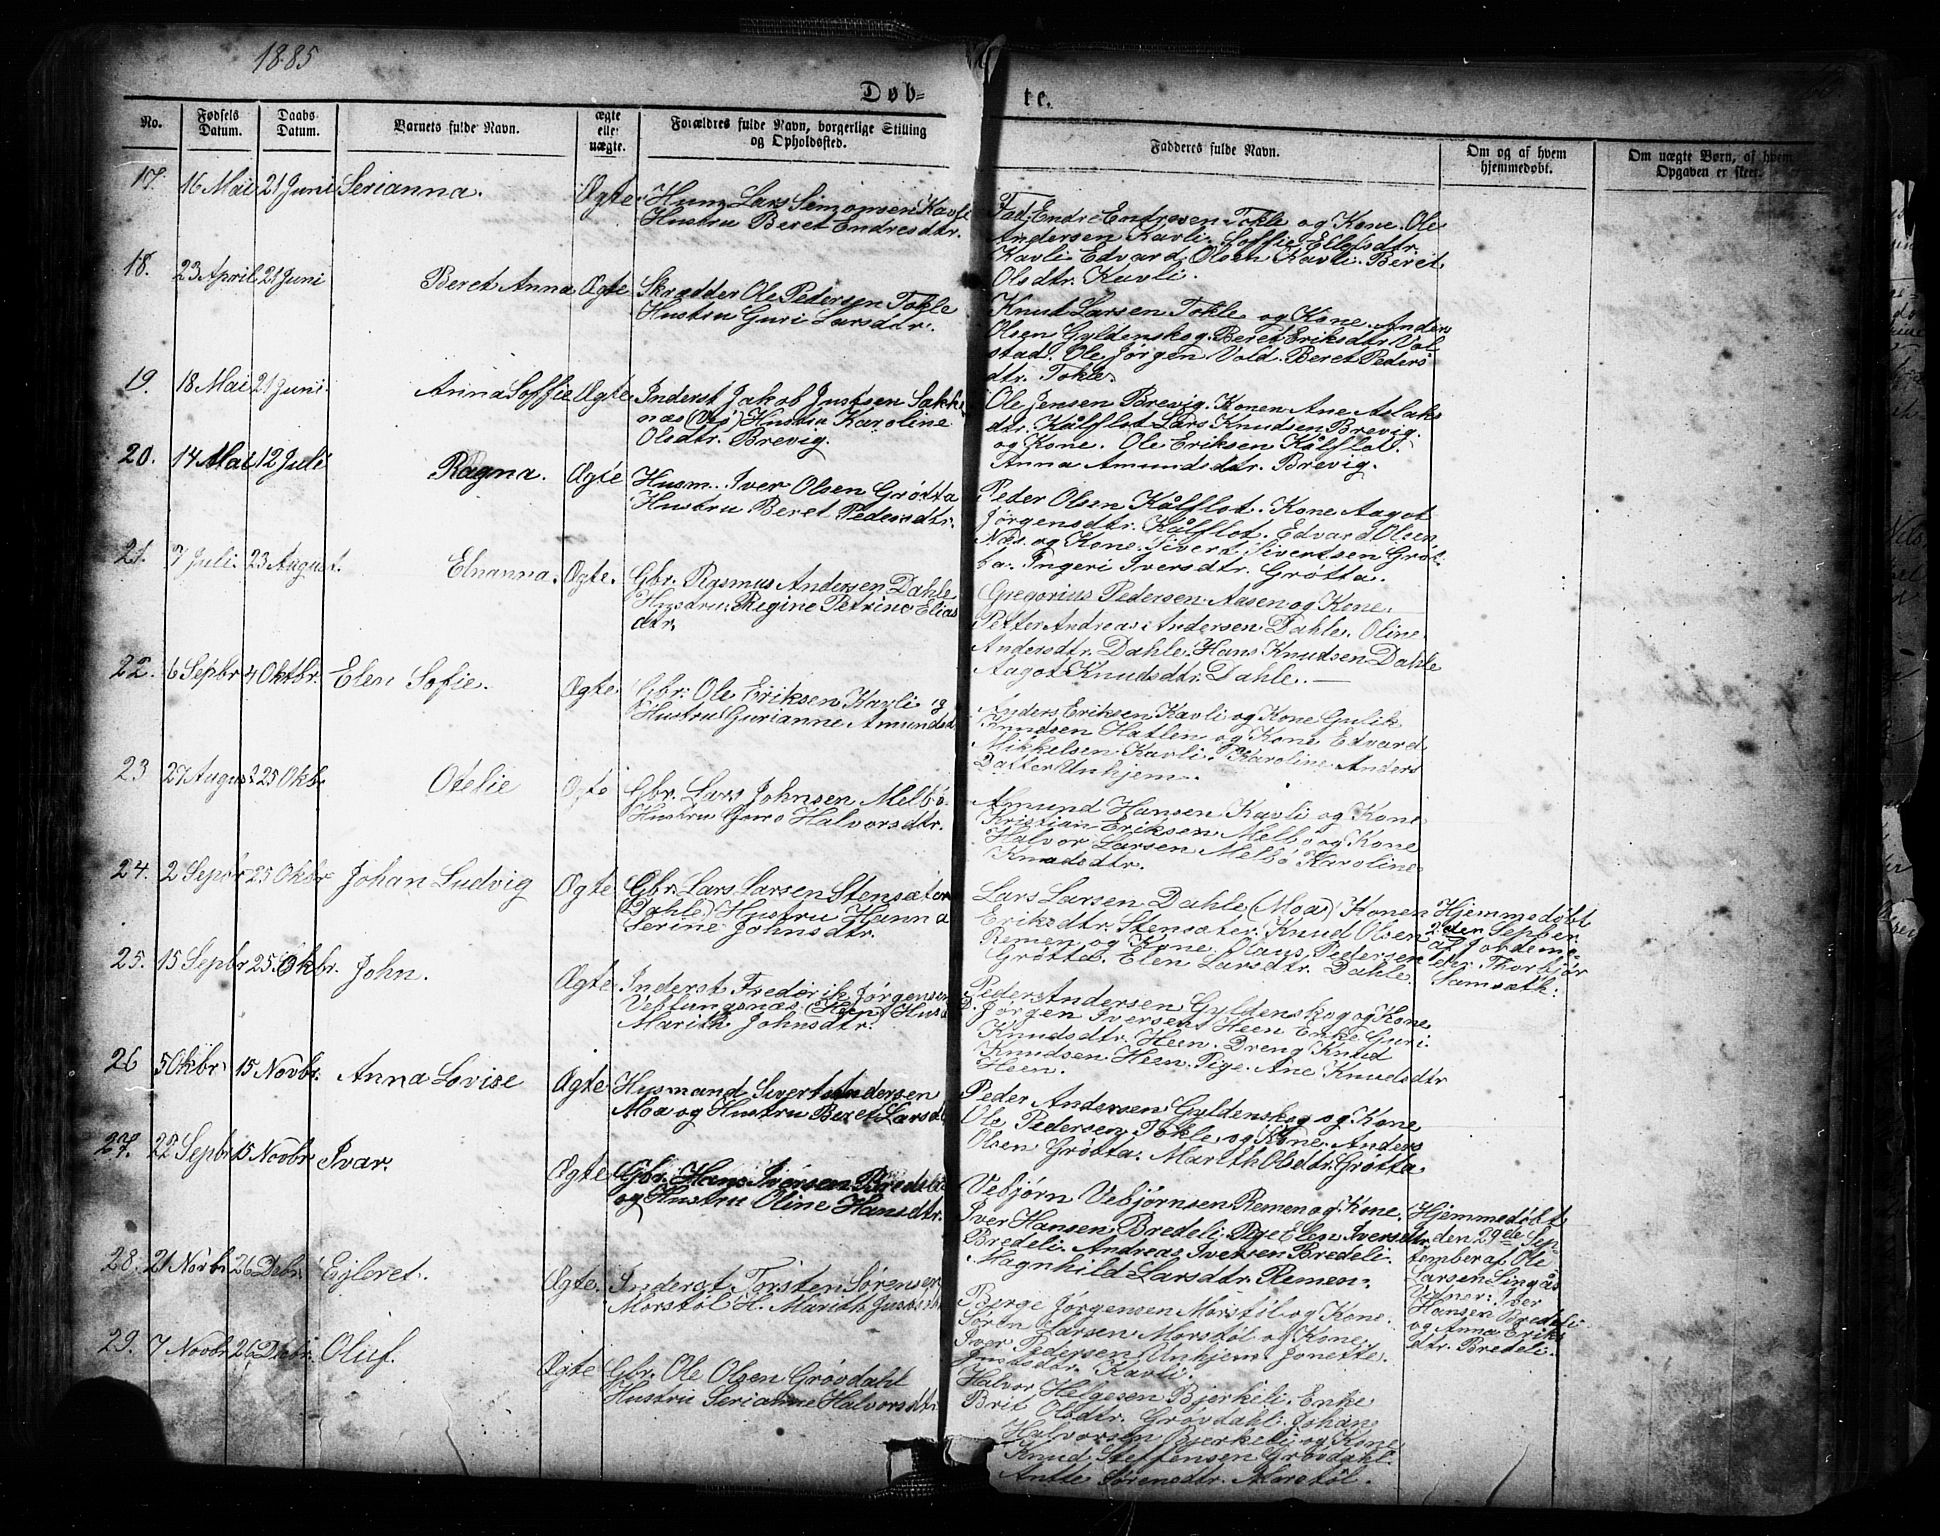 1885
Døb-
te.
No.
Fødsels Datum.
Daabs Datum.
Barnets fulde Navn.
ægte eller uægte.
Forældres fulde Navn, borgerlige Stilling
og Opholdssted.
Fadderes fulde Navn.
Om og af hvem
hjemmedøbt.
Om uægte Børn, af hvem
Opgaven er skeet.
17. 16 Mai 21 Juni Serianna. Ægte. Husm Lars Simonsen Kavli
Hustru Beret Endresdtr.
Fad: Endre Endresen Tokle og Kone. Ole
Andersen Kavli. Soffie Ellefsdtr.
Kavli. Edvard Olsen Kavli. Beret
Olsdtr. Kavli.
18. 23 April 21 Juni Beret Anna Ægte Skrædder Ole Pedersen Tokle
Hustru Guri Larsdtr.
Knud Larsen Tokle og Kone. Anders
Olsen Gyldenskog. Beret Eriksdtr. Vol
stad. Ole Jørgen Vold. Beret Peders
dtr. Tokle.
19. 18 Mai 21 Juni. Anna Soffie Ægte Inderst Jakob Justsen Sakke
næs (Vio) Hustru Karoline
Olsdtr. Brevig.
Ole Jensen Brevig. Konen Ane Aslaks
dtr. Kålflot Lars Knudsen Brevig.
og Kone. Ole Eriksen Kålflot.
Anna Amundsdtr. Brevig.
20. 14 Mai 12 Juli Ragna. Ægte Husm. Iver Olsen Grøtta
Hustru Beret Pedersdtr.
Peder Olsen Kålflot. Kone Aagot
Jørgensdtr. Kålflot. Edvard Olsen
Næs. og Kone. Sivert Sivertsen Grøt-
ta. Ingeri Iversdtr. Grøtta.
21. 7 Juli. 23 August. Elnanna. Ægte. Gbr. Rasmus Andersen Dahle
Hustru Regine Petrine Elias
dtr.
Gregorius Pedersen Aasen og Kone.
Petter Andreas Andersen Dahle. Oline
Andersdtr. Dahle. Hans Knudsen Dahle
Aagot Knudsdtr. Dahle.
22. 6 Sepbr 4 Oktbr. Elen Sofie. Ægte Gbr. Ole Eriksen Kavli og
Hustru Gurianne Amundsd
Anders Eriksen Kavli og Kone Gulik
Knudsen Hatlen og Kone Edvard
Mikkelsen Kavli. Karoline Anders
Datter Unhjem.
23 27 August 25 Okbr Otelie Ægte Gbr. Lars Johnsen Melbø.
Hustru Guro Halvorsdtr.
Amund Hansen Kavli og Kone
Kristian Eriksen Melbø og Kone
Halvor Larsen Melbø Karoline
Knudsdtr.
24. 2 Sepbr 25 Okbr Johan Ludvig Ægte Gbr. Lars Larsen Stensæter
(Dahle) Hustru Hanna
Serine Johnsdtr.
Lars Larsen Dahle (Moa) Konen
Eriksdtr. Stensæter. Knud Olsen
Remen og Kone. Olaus Pedersen
Grøtta. Elen Larsdtr. Dahle.
Hjemmedøbt
2den Sepber
af Jordemo-
der Thorbjør
Samsæth.
25. 15 Sepbr 25 Okbr. John. Ægte Inderst Frederik Jørgensen
Veblungsnæs (Heen) Hust
Marith Johnsdtr.
Peder Andersen Gyldenskog og Kone
D. Jørgen Iversen Heen Enke Guri
Knudsdtr. Heen. Dreng Knud
Knudsen Heen Pige. Ane Knudsdtr
Heen.
26 5 Okbr 15 Novbr. Anna Lovise Ægte Husmand Sivert Andersen
Moa og Hustru Beret Larsdt
Peder Andersen Gyldenskog og Kone
Ole Pedersen Tokle og Kone. Anders
Olsen Grøtta. Marith Olsdtr. Grøtta.
27. 22 Sepbr 15 Novbr Ivar. Ægte Gbr. Hans Iversen Bredeli
og Hustru Oline Hansdtr.
Vebjørn Vebjørnsen Remen og Kone.
Iver Hansen Bredeli. Pige Elen Iversdtr
Bredeli. Andreas Iversen Bredeli.
Magnhild Larsdtr. Remen.
Hjemmedøbt
den 29de Sep-
tember af Ole
Larsen Singås
Vidner: Iver
Hansen Bredeli
og Anna Eriks
dtr. Bredeli.
28. 21 Novbr 26 Debr. Ejleret. Ægte. Inderst Torsten Sørensen
Morstøl H. Marith Justsdtr
Børge Jørgensen Morstøl og Kone.
Søren Larsen Morstøl og Kone
Iver Pedersen Unhjem. Jonette
Justsdtr. Kavli.
29. 7 Novbr 26 Debr. Oluf. Ægte Gbr. Ole Olsen Grøvdahl
Hustru Serianne Halvorsdtr
Halvor Helgesen Bjerkeli. Enke
Brit Olsdtr. Grøvdahl. Johan
Halvorsen Bjerkeli og Kone
Knud Steffensen Grøvdahl.
Antte Sørensdtr. Marstøl.